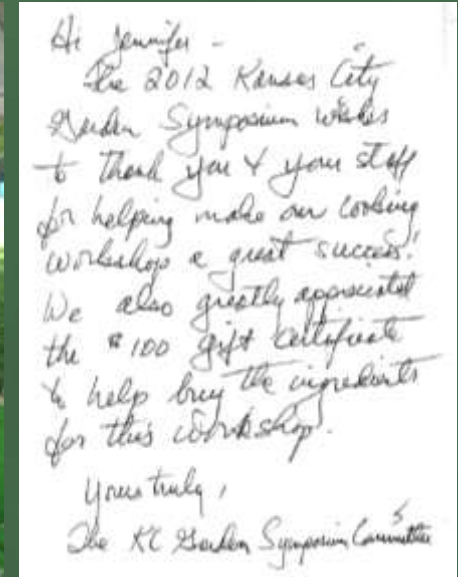 Hi Jennifer -
The 2012 Kansas City
Garden Symposium wishes
to thank you & your staff
for helping make our cooking
workshop a great success!
We also greatly appreciated
the $100 gift certificate
to help buy the ingredients
for this workshop.
Yours truly,
The KC Garden Symposium Committee